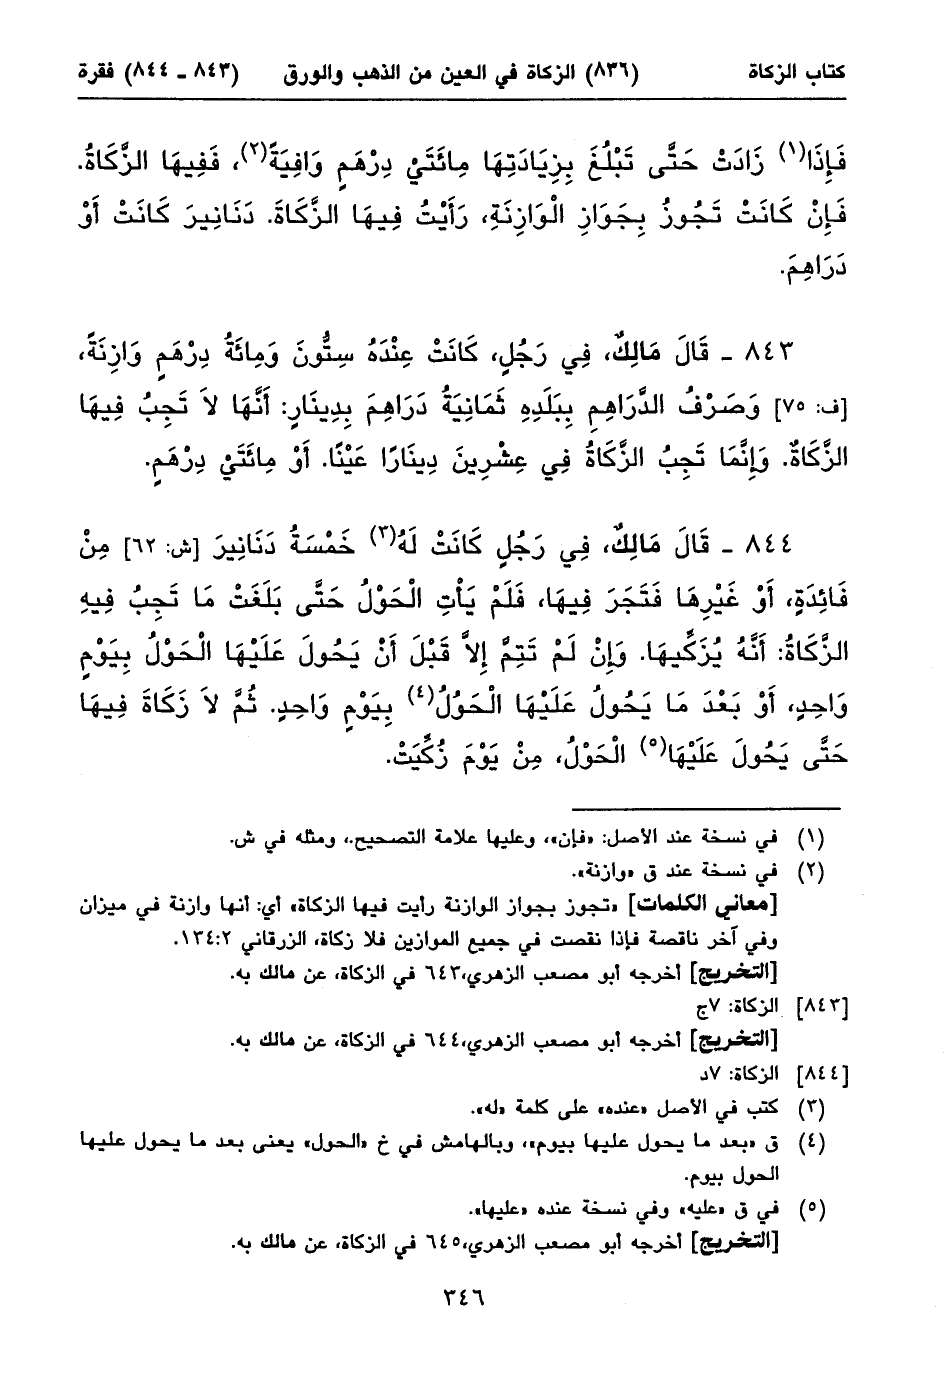 كتاب الزكاة (٨٣٦) الزكاة في العين من الذهب والورق (٨٤٣ ـ ٨٤٤) فقرة
فَإِذَا(١) زَادَتْ حَتَّى تَبْلُغَ بِزِيَادَتِهَا مِائَتَيْ دِرْهَمٍ وَافِيَةً(٢)، فَفِيهَا الزَّكَاةُ.
فَإِنْ كَانَتْ تَجُوزُ بِجَوَازِ الْوَازِنَةِ، رَأَيْتُ فِيهَا الزَّكَاةَ. دَنَانِيرَ كَانَتْ أَوْ
دَرَاهِمَ.
٨٤٣ ـ قَالَ مَالِكٌ، فِي رَجُلٍ، كَانَتْ عِنْدَهُ سِتُّونَ وَمِائَةُ دِرْهَمٍ وَازِنَةً،
[ف: ٧٥] وَصَرْفُ الدَّرَاهِمِ بِبَلَدِهِ ثَمَانِيَةُ دَرَاهِمَ بِدِينَارٍ: أَنَّهَا لاَ تَجِبُ فِيهَا
الزَّكَاةُ. وَإِنَّمَا تَجِبُ الزَّكَاةُ فِي عِشْرِينَ دِينَارًا عَيْنًا. أَوْ مِائَتَيْ دِرْهَمٍ.
٨٤٤ ـ قَالَ مَالِكٌ، فِي رَجُلٍ كَانَتْ لَهُ(٣) خَمْسَةُ دَنَانِيرَ [ش: ٦٢] مِنْ
فَائِدَةٍ، أَوْ غَيْرِهَا فَتَجَرَ فِيهَا، فَلَمْ يَأْتِ الْحَوْلُ حَتَّى بَلَغَتْ مَا تَجِبُ فِيهِ
الزَّكَاةُ: أَنَّهُ يُزَكِّيهَا. وَإِنْ لَمْ تَتِمَّ إِلاَّ قَبْلَ أَنْ يَحُولَ عَلَيْهَا الْحَوْلُ بِيَوْمٍ
وَاحِدٍ، أَوْ بَعْدَ مَا يَحُولُ عَلَيْهَا الْحَوْلُ(٤) بِيَوْمٍ وَاحِدٍ. ثُمَّ لاَ زَكَاةَ فِيهَا
حَتَّى يَحُولَ عَلَيْهَا(٥) الْحَوْلُ، مِنْ يَوْمَ زُكِّيَتْ.
(١) في نسخة عند الأصل: «فإن»، وعليها علامة التصحيح.، ومثله في ش.
(٢) في نسخة عند ق «وازنة».
[معاني الكلمات] «تجوز بجواز الوازنة رأيت فيها الزكاة» أي: أنها وازنة في ميزان
وفي آخر ناقصة فإذا نقصت في جميع الموازين فلا زكاة، الزرقاني ١٣٤:٢.
[التخريج] أخرجه أبو مصعب الزهري،٦٤٣ في الزكاة، عن مالك به.
[٨٤٣] الزكاة: ٧ج
[التخريج] أخرجه أبو مصعب الزهري،٦٤٤ في الزكاة، عن مالك به.
[٨٤٤] الزكاة: ٧د
(٣) كتب في الأصل «عنده» على كلمة «له».
(٤) ق «بعد ما يحول عليها بيوم»، وبالهامش في خ «الحول» يعنى بعد ما يحول عليها
الحول بيوم.
(٥) في ق «عليه» وفي نسخة عنده «عليها».
[التخريج] أخرجه أبو مصعب الزهري،٦٤٥ في الزكاة، عن مالك به.
٣٤٦